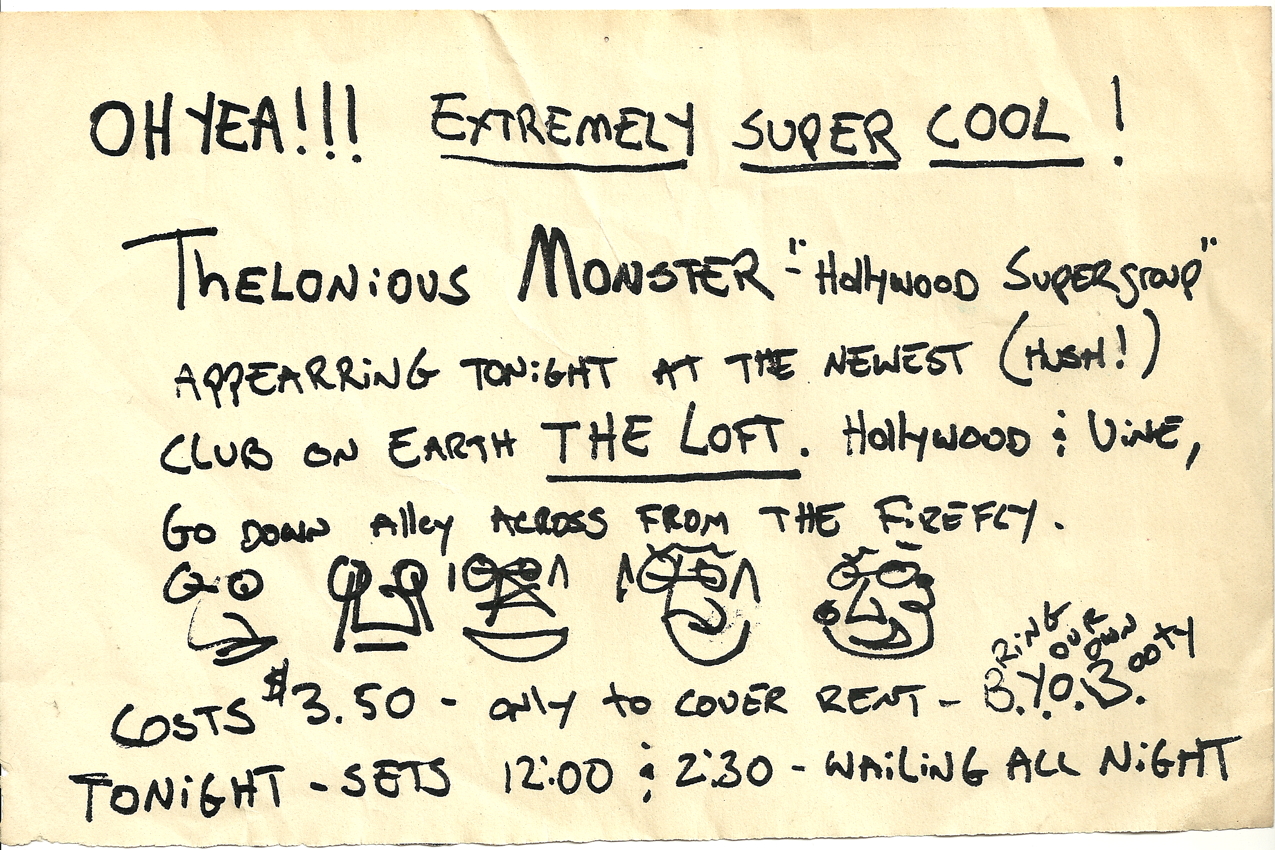 OH YEA!!! EXTREMELY SUPER COOL!
THELONiOUS MONSTER - "HOllYWOOD SUPERgROUP"
APPEARRiNG TONiGHT AT THE NEWEST (HUSH!)
CLUB ON EARTH THE LOFT. HOllYWOOD & ViNE,
GO DOWN AllEY ACROSS FROM THE FiREFLY.
COSTS $3.50 - ONlY to COVER RENT - B.Y.O.B.
BRiNG YOUR OWN BOOTY
TONiGHT - SETS 12:00 & 2:30 - WAiLiNG ALL NiGHT